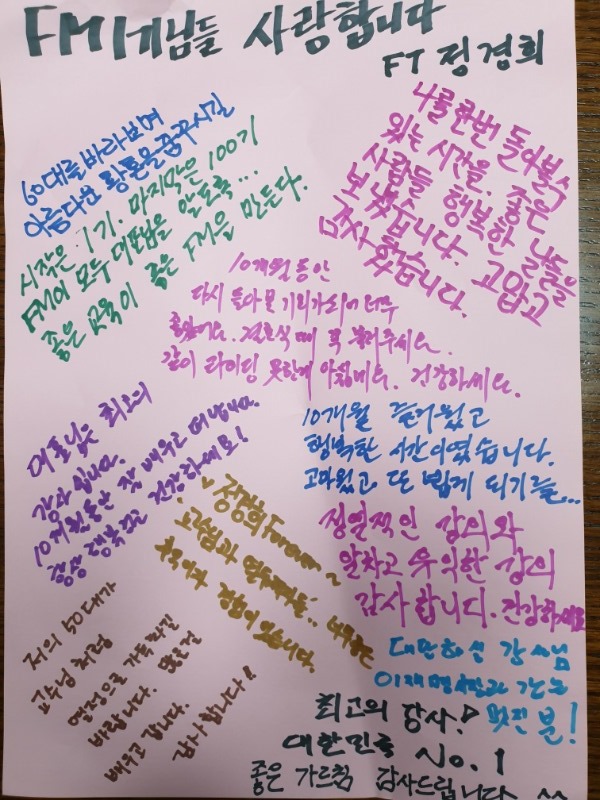 FM 님들 사랑합니다
FT 정경희
60대를 바라보며
아름다운 황혼을 꿈꾸시길
시작은 1기. 마지막은 100기
FM이 모두 대표님을 알도록...
좋은 교육이 좋은 FM을 만든다.
나를 한번 돌아볼수
있는 시간을. 좋은
사람들 행복한 날들을
보냈습니다. 고맙고
감사했습니다.
10개월 동안
다시 돌아볼 기회가 되어 너무
좋았어요. 결혼식 때 꼭 불러주세요.
같이 라이딩 못한게 아쉽네요. 건강하세요.
대표님은 최고의
강사 입니다.
10개월 동안 잘 배우고 떠납니다.
항상 행복하고 건강하세요!
10개월 즐거웠고
행복한 시간이였습니다.
고마웠고, 또 뵙게 되기를...
정경희 Forever~
교수님과 열두제자들.. 너무
경험이 있습니다.
정열적인 강의와
알차고 유익한 강의
감사합니다. 건강하세요
저의 50대가
교수님 처럼
열정으로 가득하길
바랍니다. 많은걸
배우고 갑니다.
감사합니다!!
대단하신 강사님
이재명 시장과 같은
멋진 분!
최고의 강사!
대한민국 No. 1
좋은 가르침 감사드립니다 ^^